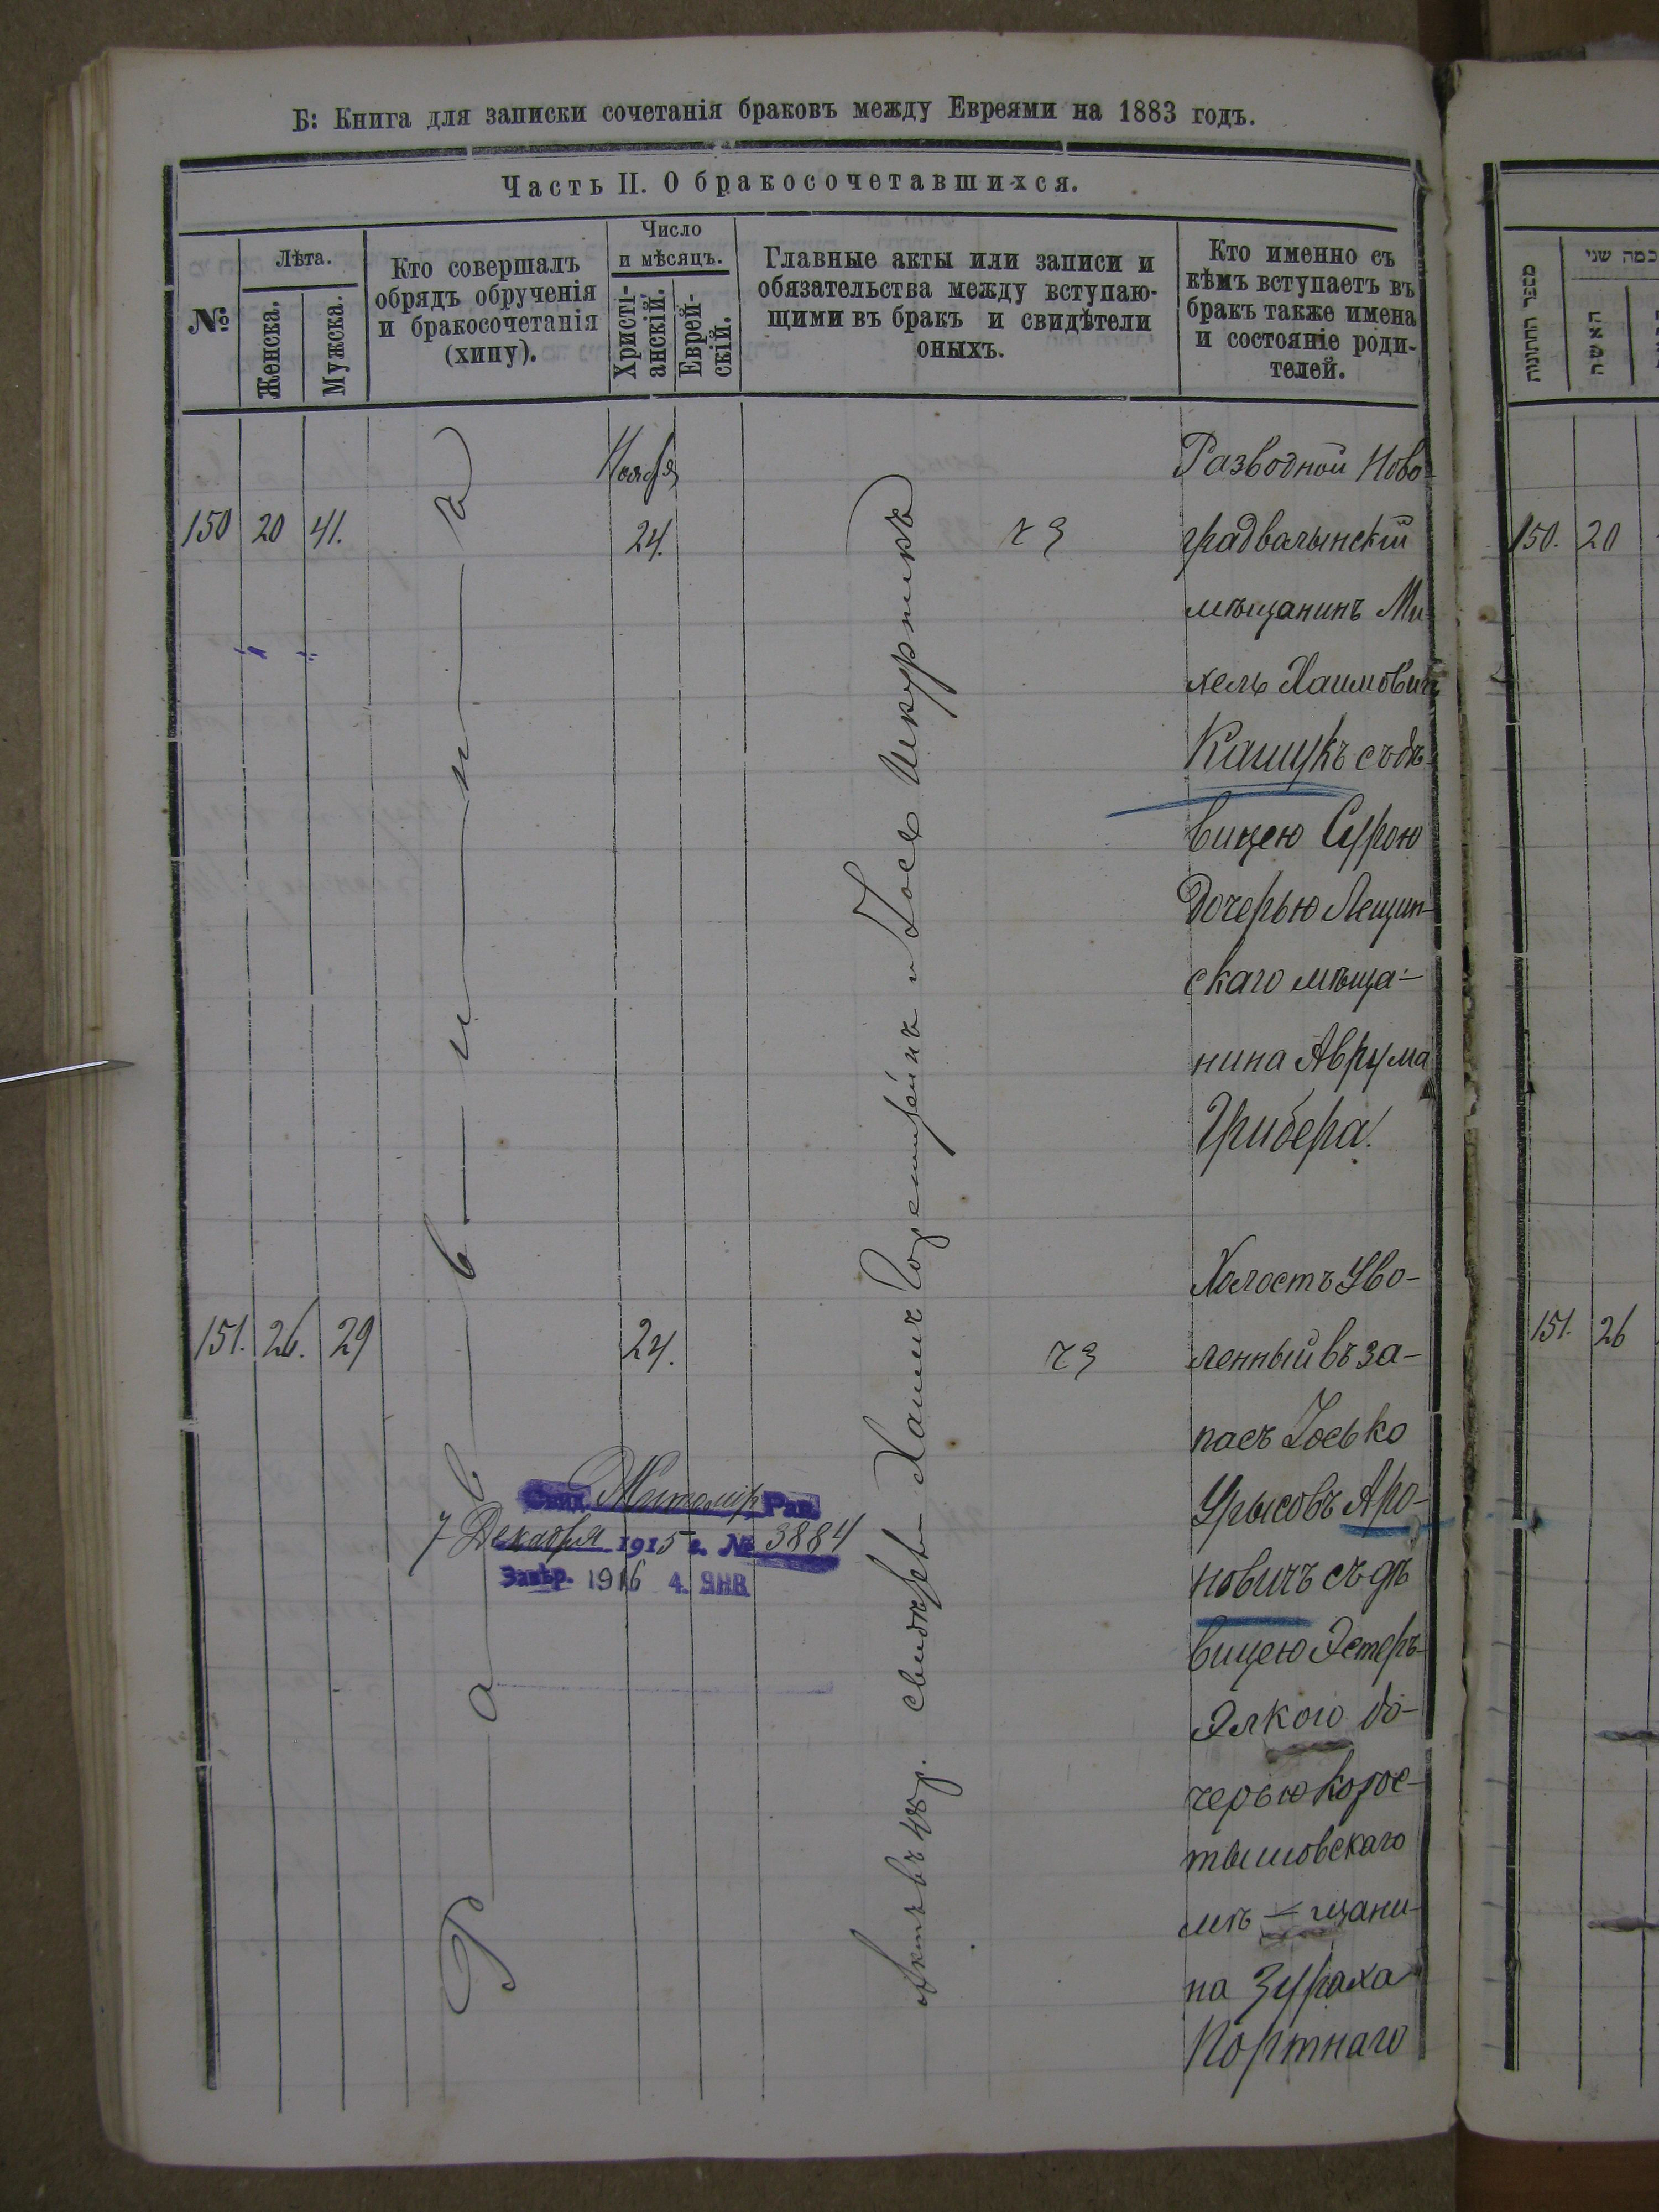 Б: Книга для записки сочетанія браковъ между Евреями на 1883 годъ.
Часть II. О бракосочетавшихся.
№
Лѣта.
Женска.
Мужска.
Кто совершалъ
обрядъ обрученія
и бракосочетанія
(хипу).
Число
и мѣсяцъ.
Христі-
анскій.
Еврей-
скій.
Главные акты или записи и
обязательства между вступаю-
щими въ бракъ и свидѣтели
оныхъ.
Кто именно съ
кѣмъ вступаетъ въ
бракъ также имена
и состояніе роди-
телей.
Раввина
Актъ въ 48 р. свидѣтели Хаимъ Горенштейнъ и Іось Шкурникъ
150 20 41.
Ноября
24.
чз
Разводной Ново-
градволынскій
мѣщанинъ Ми-
хель Хаимовичъ
Кашукъ съ дѣ-
вицею Сурою
дочерью Лещин-
скаго мѣща-
нина Аврума
Грибера.
151. 26. 29
24.
чз
Холостъ уво-
ленный въ за-
пасъ Іосько
Урысовъ Аро-
новичъ съ дѣ
вицею Эстеръ-
Элкою до-
черью корос-
тышовскаго
мѣ-щани-
на Зураха
Портнаго
Свид. Житомир. Рав.
7 Декабря 1915 г. № 3884
Завѣр. 1916 4. ЯНВ
מספר החתונות
כמה שני
האשה
150. 20
151. 26